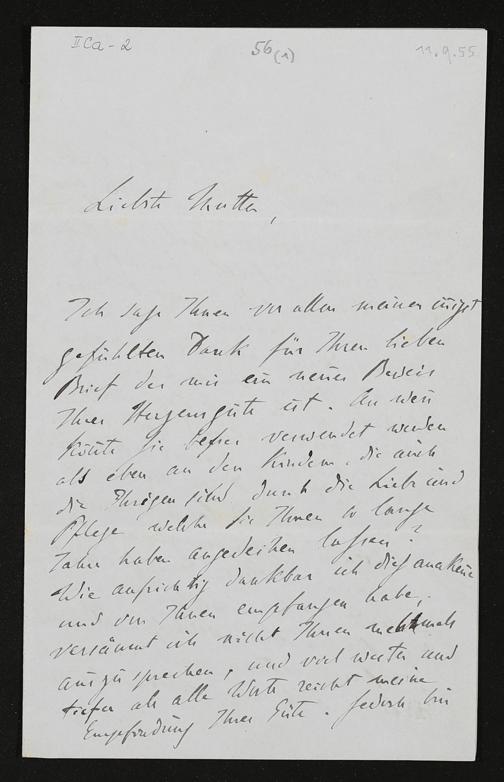 II Ca - 2
56 (1)
11.9.55
Liebste Mutter,
Ich sage Ihnen vor allem meinen innigst
gefühlten Dank für Ihren lieben
Brief der mir ein neuer Beweis
Ihrer Herzensgüte ist. An wen
könte sie besser verwendet werden
als eben an den Kindern, die auch
die Ihrigen sind durch die Liebe und
Pflege welche Sie Ihnen so lange
Jahre haben angedeihen lassen?
Wie aufrichtig dankbar ich dieß anerkenne
und von Ihnen empfangen habe,
versäumt ich nicht Ihnen mehrmals
auszusprechen, und viel weiter und
tiefer als alle Worte reicht meine
Empfindung Ihrer Güte. Jedoch bin